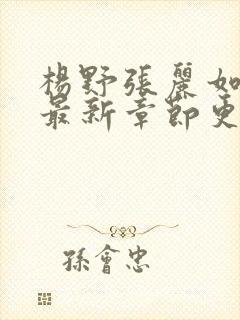 楊野張麗如
最新章節更
孫會忠